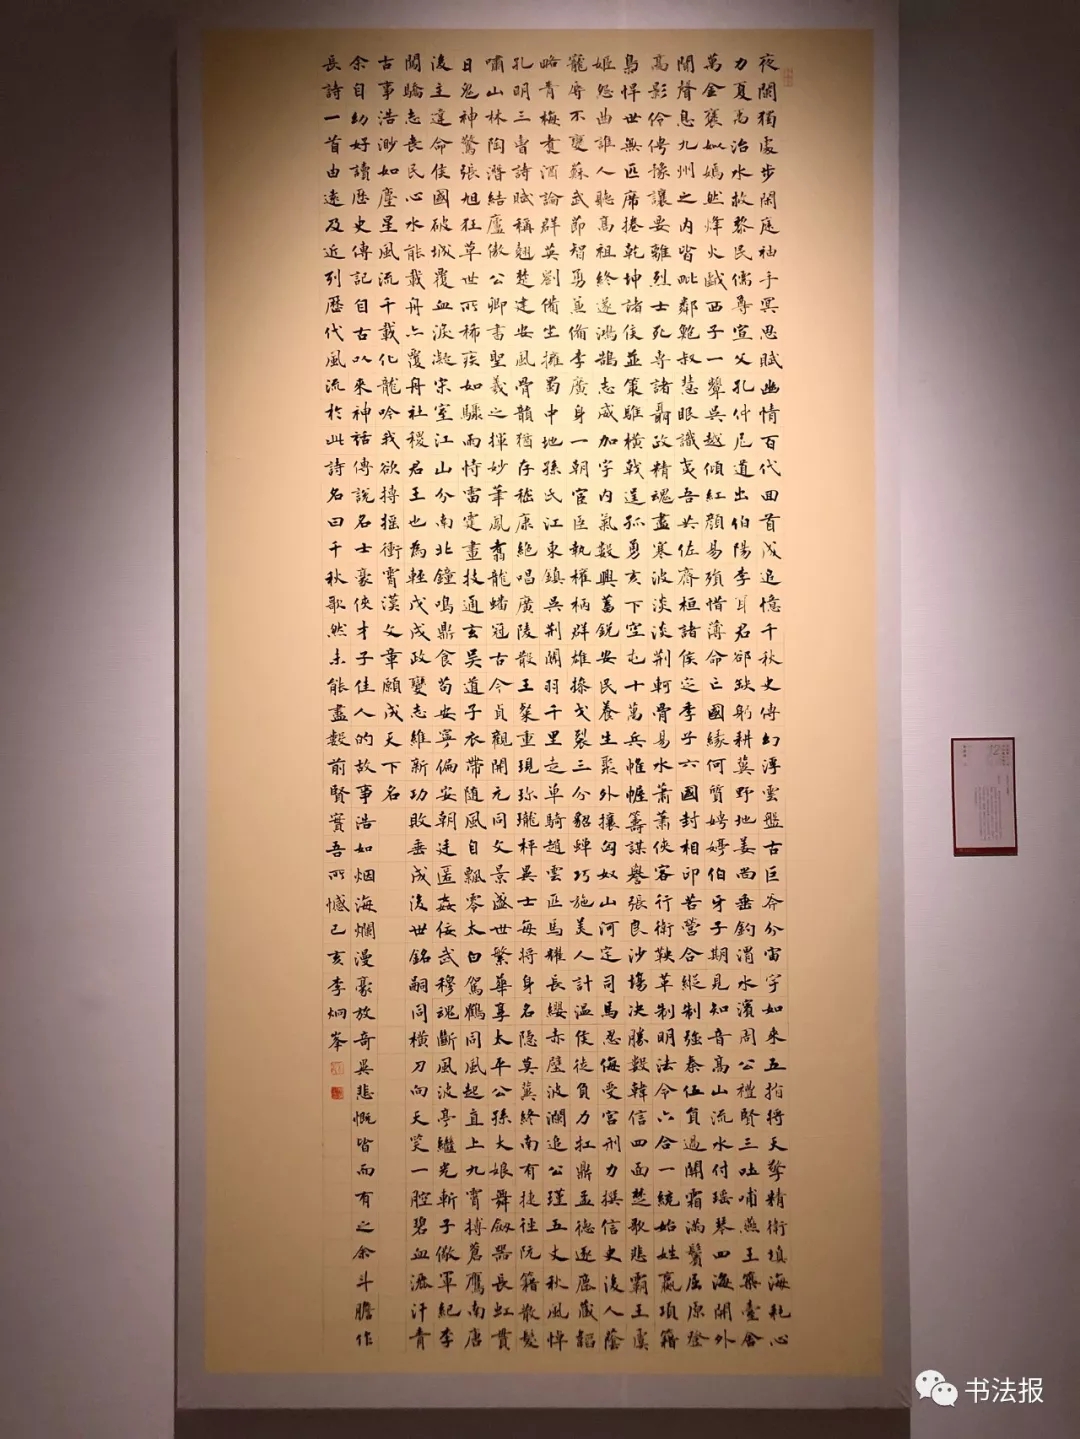 夜闌獨處步閑庭袖手冥思賦幽情百代回首成追憶千秋史傳幻浮雲盤古巨斧分宙宇如來五指將天擎精衛填海耗心
力夏禹治水救黎民儒尊宣父孔仲尼道出伯陽李耳君郤缺躬耕冀野地姜尚垂釣渭水濱周公禮賢三吐哺燕王築臺舍
萬金褒姒嫣然烽火戲西子一顰吳越傾紅顏易殞惜薄命亡國緣何質娉婷伯牙子期見知音高山流水付瑤琴四海開外
聞聲息九州之內皆毗鄰鮑叔慧眼識夷吾共佐齊桓諸侯定季子六國封相印苦營合縱制強秦伍員過關霜滿鬢屈原登
高影伶俜豫讓要離烈士死專諸聶政精魂盡寒波淡淡荊軻骨易水蕭蕭俠客行衛鞅革制明法令六合一統始姓嬴項籍
梟悍世無匹席捲乾坤諸侯並策騅橫戟逞孤勇亥下空屯十萬兵帷幄籌謀譽張良沙場決勝數韓信四面楚歌悲霸王虞
姬怨曲誰人聽高祖終遂鴻鵠志威加宇內氣數興蓄銳安民養生聚外攘匈奴山河定司馬忍侮受宮刑力撰信史後人蔭
寵辱不變蘇武節智勇兼備李廣身一朝宦臣執權柄群雄操戈裂三分貂蟬巧施美人計溫侯徒負力扛鼎孟德逐鹿藏韜
略青梅煮酒論群英劉備坐擁蜀中地孫氏江東鎮吳荊關羽千里走單騎趙雲匹馬耀長纓赤壁波瀾追公瑾五丈秋風悼
孔明三曹詩賦稱翹楚建安風骨韻猶存嵇康絕唱廣陵散王粲重現珍瓏枰吳士每將身名隱莫冀終南有捷徑阮籍散髮
嘯山林陶潛結廬傲公卿書聖羲之揮妙筆鳳翥龍蟠冠古今貞觀開元同文景盛世繁華享太平公孫大娘舞劍器長虹貫
日鬼神驚張旭狂草世所稀疾如驟雨恃雷霆畫技通玄吳道子衣帶隨風自飄零太白駕鶴同風起直上九霄搏蒼鷹南唐
後主違命侯國破城覆血淚凝宋室江山分南北鐘鳴鼎食苟安寧偏安朝廷匿姦佞武穆魂斷風波亭繼光斬子儆軍紀李
闖驕志喪民心水能載舟亦覆舟社稷君王也為輕戊戌政變志維新功敗垂成後世銘嗣同橫刀向天笑一腔碧血灑汗青
古事浩渺如塵星風流千載化龍吟我欲搏搖衝霄漢文章願成天下名
余自幼好讀歷史傳記自古以來神話傳說名士豪俠才子佳人的故事浩如烟海爛漫豪放奇異悲慨皆而有之余斗膽作
長詩一首由遠及近列歷代風流於此詩名曰千秋歌然未能盡數前賢實吾所憾己亥李炯峯
书法报